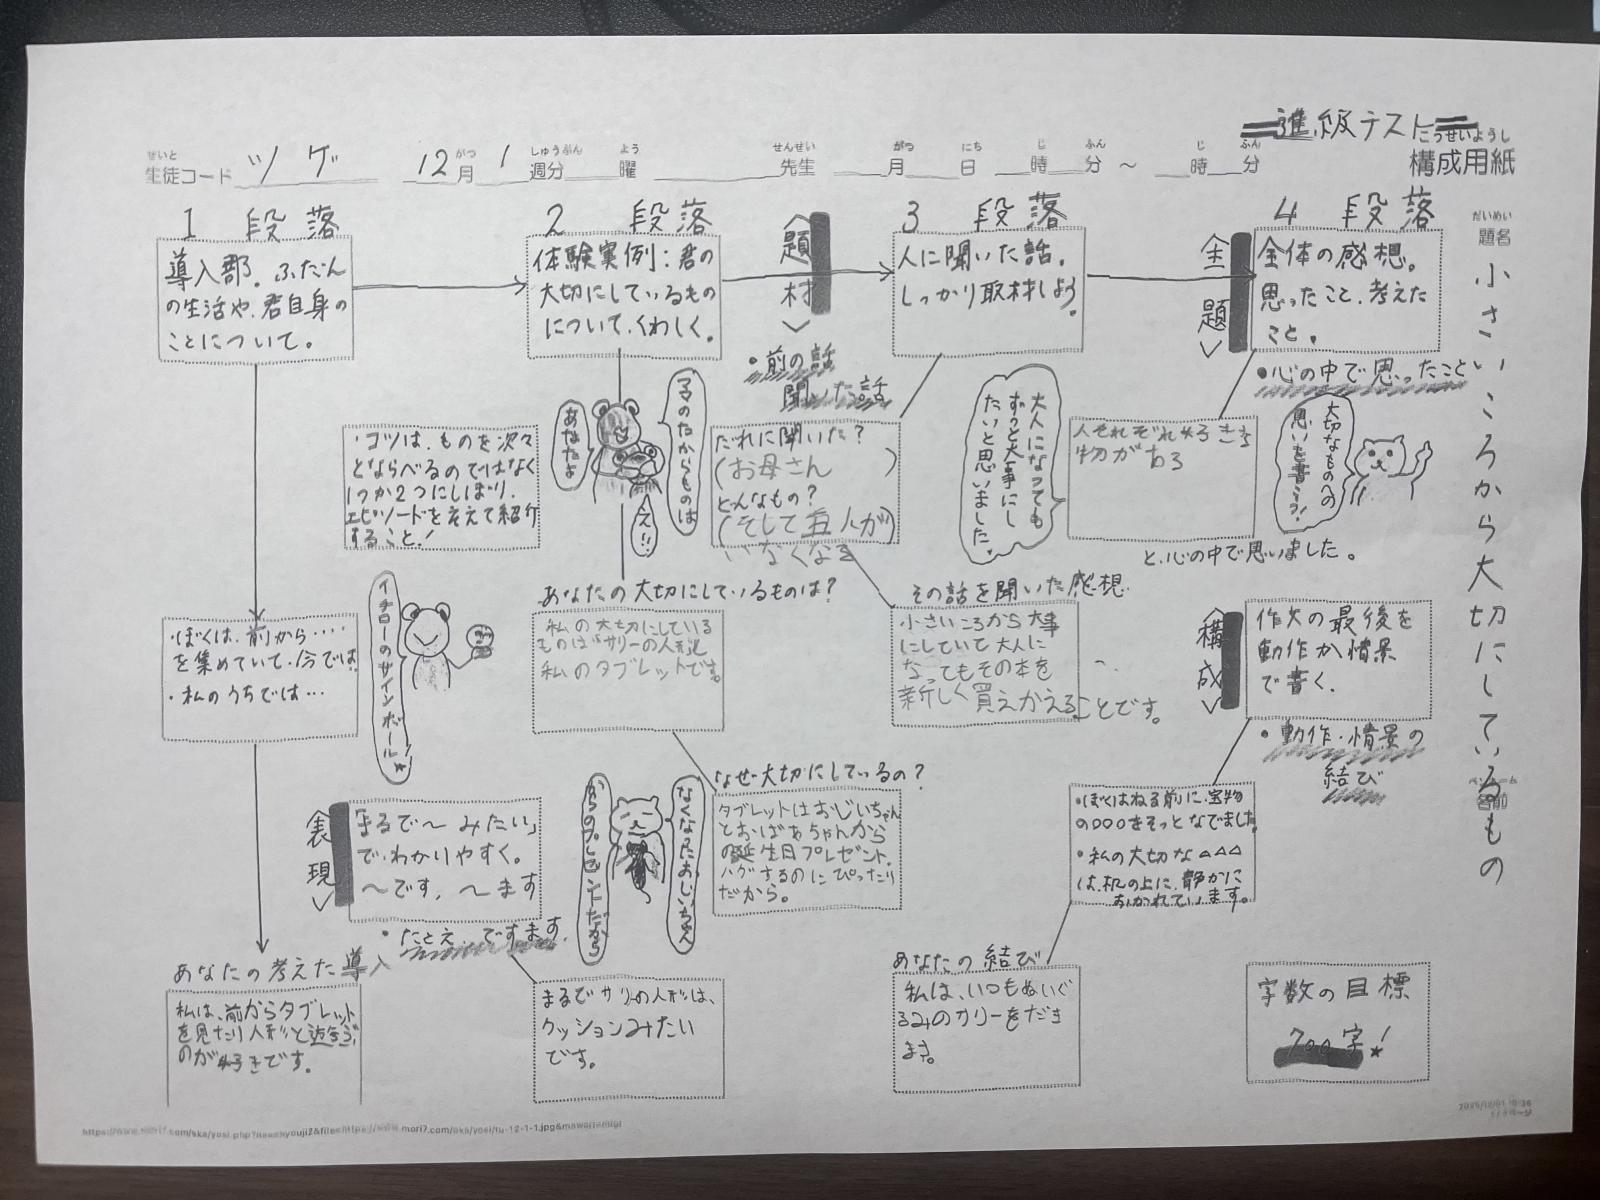 進級テスト
せいと
生徒コード ツゲ
12月 1週分
がつ しゅうぶん よう
曜
せんせい
先生
がつ にち じ ふん じ ふん
月 日 時 分 ～ 時 分
こうせいようし
構成用紙
だいめい
題名
小さいころから大切にしているもの
ペンネーム
名前
1 段落
導入部。ふだん
の生活や、君自身の
ことについて。
・ぼくは、前から‥‥
を集めていて、今では
・私のうちでは…
イチローのサインボール
あなたの考えた導入
私は、前からタブレット
を見たり人形と遊ぶ
のが好きです。
2 段落
体験実例：君の
大切にしているもの
について、くわしく。
・コツは、ものを次々
とならべるのではなく
1つか2つにしぼり、
エピソードをそえて紹介
すること！
あなたよ
ママのたからものは
え!!
あなたの大切にしているものは？
私の大切にしている
ものはサリーの人形と
私のタブレットです。
なぜ大切にしているの？
タブレットはおじいちゃん
とおばあちゃんから
の誕生日プレゼント。
ハグするのにぴったり
だから。
なくなったおじいちゃん
からのプレゼントだから
＜表現＞
「まるで～みたい」
で、わかりやすく。
～です、～ます
・たとえ、ですます。
まるでサリーの人形は、
クッションみたい
です。
＜題材＞
・前の話
聞いた話
3 段落
人に聞いた話。
しっかり取材しよう。
だれに聞いた？
(お母さん)
どんなもの？
大人になっても
ずっと大事にし
たいと思いました。
その話を聞いた感想
小さいころから大事
にしていて大人に
なってもその本を
新しく買えかえることです。
＜主題＞
4 段落
全体の感想。
思ったこと、考えた
こと。
・心の中で思ったこと
人それぞれ好きな
物がある
と、心の中で思いました。
大切なものへの
思いを書こう！
＜構成＞
作文の最後を
動作か情景
で書く。
・動作・情景の
結び
・ぼくはねる前に、宝物
の○○○をそっとなでました。
・私の大切な△△△
は、机の上に、静かに
おかれています。
あなたの結び
私は、いつもぬいぐ
るみのサリーをだき
ます。
字数の目標
700字！